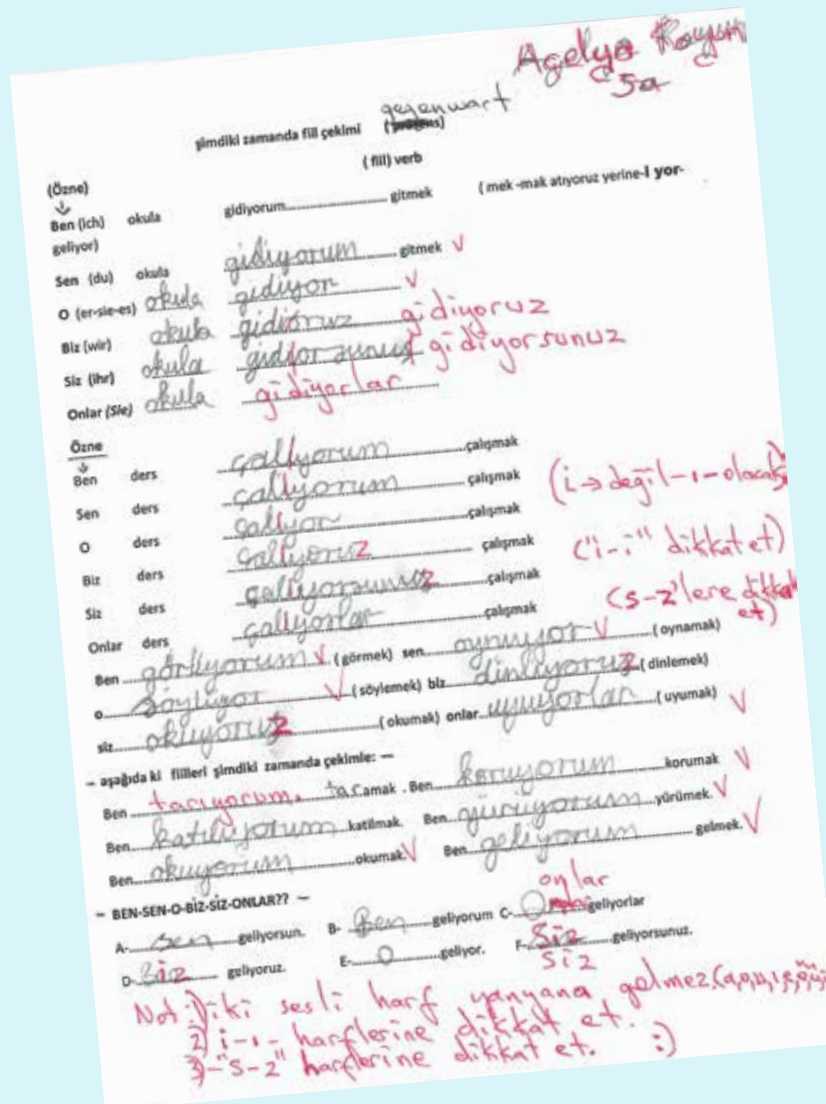 Açelya
5a
gegenwart
şimdiki zamanda fiil çekimi
( fiil) verb
(Özne)
Ben (ich) okula gidiyorum gitmek ( mek -mak atıyoruz yerine-İ yor-
geliyor)
Sen (du) okula gidiyorum gitmek
O (er-sie-es) okula gidiyor
Biz (wir) okula gidioruz gidiyoruz
Siz (ihr) okula gidiyorsunuz
Onlar (Sie) okula gidiyorlar
Özne
Ben ders çalıyorum çalışmak
Sen ders çalıyorum çalışmak (i → değil -ı- olacak)
O ders çalıyor çalışmak
Biz ders çalıyoruz çalışmak ("i-ı" dikkat et)
Siz ders çalıyorsunuz çalışmak (s-z'lere dikkat et)
Onlar ders çalıyorlar çalışmak
Ben görüyorum ( görmek) sen oynuyor ( oynamak)
o söylüyor ( söylemek) biz dinliyoruz ( dinlemek)
siz okuyoruz ( okumak) onlar uyuyorlar ( uyumak)
– aşağıda ki fiilleri şimdiki zamanda çekimle: —
Ben tarıyorum. taramak . Ben koruyorum korumak
Ben katılıyorum katilmak. Ben yürüyorum yürümek.
Ben okuyorum okumak. Ben geliyorum gelmek.
– BEN-SEN-O-BİZ-SİZ-ONLAR?? –
onlar
A- Sen geliyorsun. B- Ben geliyorum C- geliyorlar
D- Biz geliyoruz. E- O geliyor. F- Siz geliyorsunuz.
siz
Not: 1) iki sesli harf yanyana gelmez.
2) i-ı- harflerine dikkat et.
3)-"s-z" harflerine dikkat et. :)